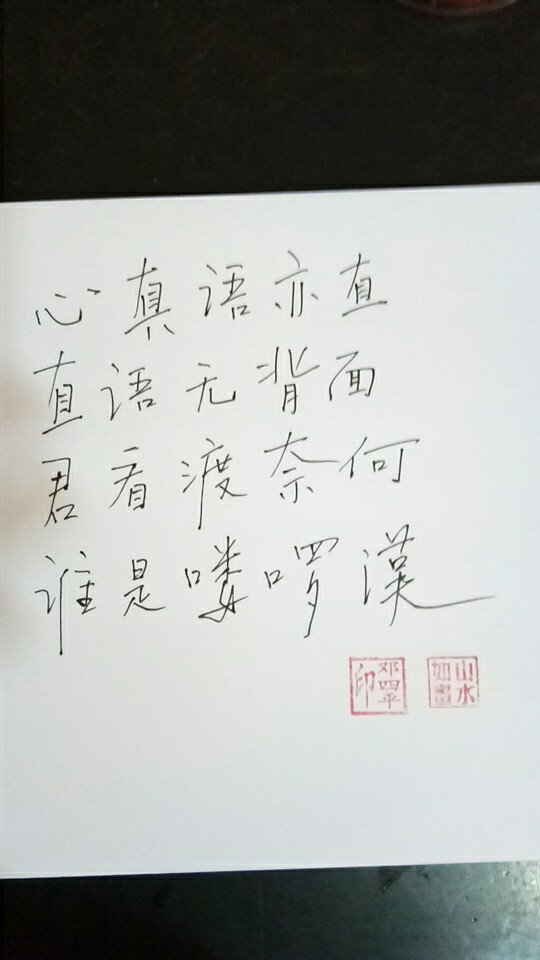 心真语亦直
直语无背面
君看渡奈何
谁是喽啰漢
邓四平印
山水如畫